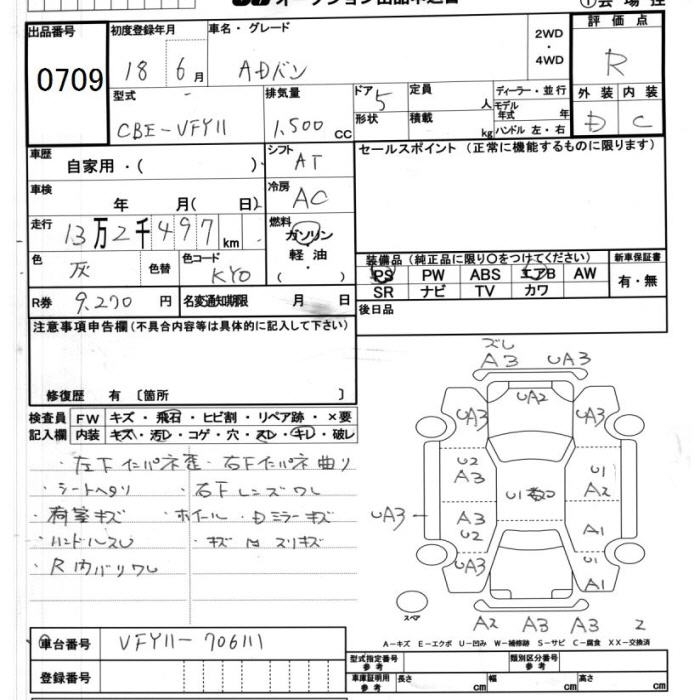 オークション出品申込書
①会場控
出品番号
0709
初度登録年月
18 6月
車名・グレード
ADバン
2WD
・
4WD
評価点
R
型式
CBE-VFY11
排気量
1,500 CC
ドア 5
形状
定員 人
積載 kg
ディーラー・並行
モデル年式 年
ハンドル 左・右
外装 内装
D C
車歴
自家用・( )
シフト
AT
セールスポイント (正常に機能するものに限ります)
車検
年 月( 日)
冷房
AC
走行
13万2千497 km
燃料
ガソリン
軽油
・
( )
色
灰
色替
色コード
KY0
装備品(純正品に限り○をつけてください)
PS PW ABS エアB AW
SR ナビ TV カワ
新車保証書
有・無
R券 9,270 円
名変通知期限 月 日
後日品
注意事項申告欄(不具合内容等は具体的に記入して下さい)
修復歴 有 〔箇所 〕
検査員
記入欄
FW キズ・飛石・ヒビ割・リペア跡・×要
内装 キズ・汚レ・コゲ・穴・スレ・キレ・破レ
・左下インパネ歪 ・右下インパネ曲り
・シートヘタリ ・右下レンズワレ
・荷室キズ ・ホイール・Dミラーキズ
・ハンドルスレ ・キズ 凹 スリキズ
・R内バリワレ
ズレ
A3 UA3
UA2
UA3 UA3
U2
A3
U1
A2
U1
UA3
A3
U2
A1
UA3
U1
A1
スペア
A2 A3 A3 2
A-キズ E-エクボ U-凹み W-補修跡 S-サビ C-腐食 XX-交換済
車台番号 VFY11-706111
登録番号
型式指定番号
参考
類別区分番号
参考
車庫証明用
参考
長さ cm 幅 cm 高さ cm